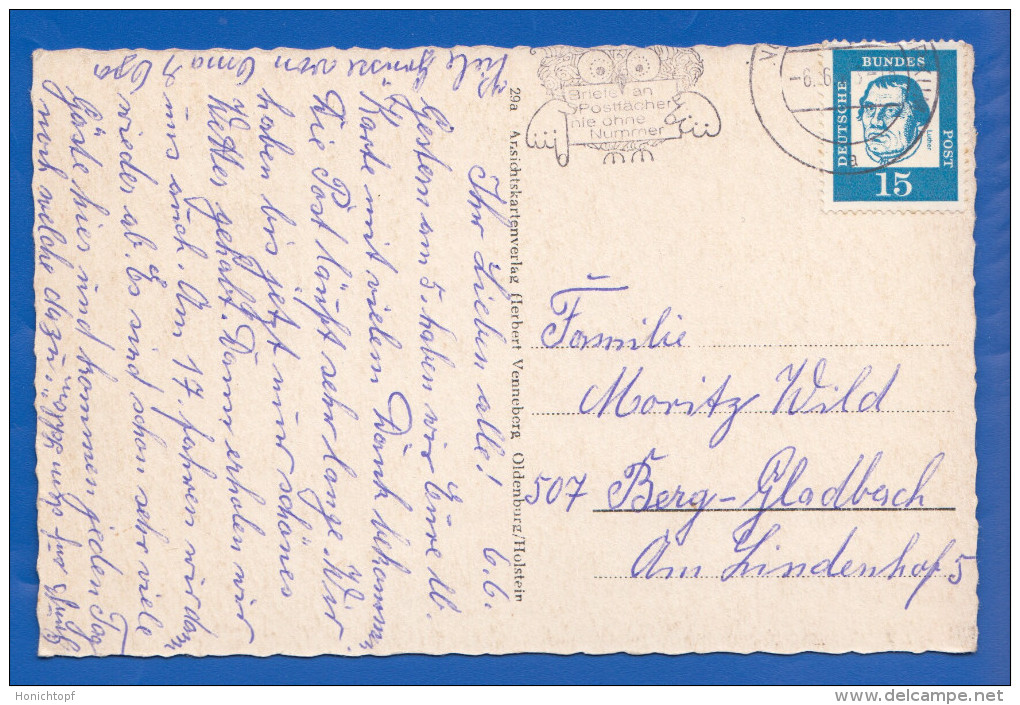 Ihr Lieben alle! 6.6.
Gestern am 5. haben wir Eure lb.
Karte mit vielem Dank bekommen,
die Post läuft sehr lange. Wir
haben bis jetzt nur schönes
Wetter gehabt. Dann erholen wir
uns auch. Am 17. fahren wir dann
wieder ab. Es sind schon sehr viele
Gäste hier und kommen jeden Tag
noch welche dazu.
Viele Grüsse von Oma &
Opa
29a Ansichtskartenverlag Herbert Venneberg Oldenburg/Holstein
Briefe an
Postfächer
nie ohne
Nummer
-6.6.
a
DEUTSCHE
BUNDES
POST
Luther
15
Familie
Moritz Wild
507 Berg-Gladbach
Am Lindenhof 5
Honichtopf
delcampe.net